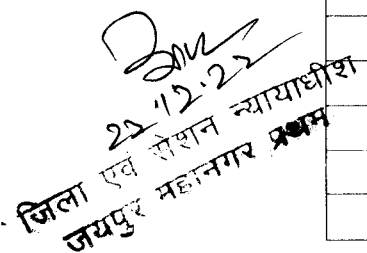 22.12.22
जिला एवं सेशन न्यायाधीश
जयपुर महानगर प्रथम